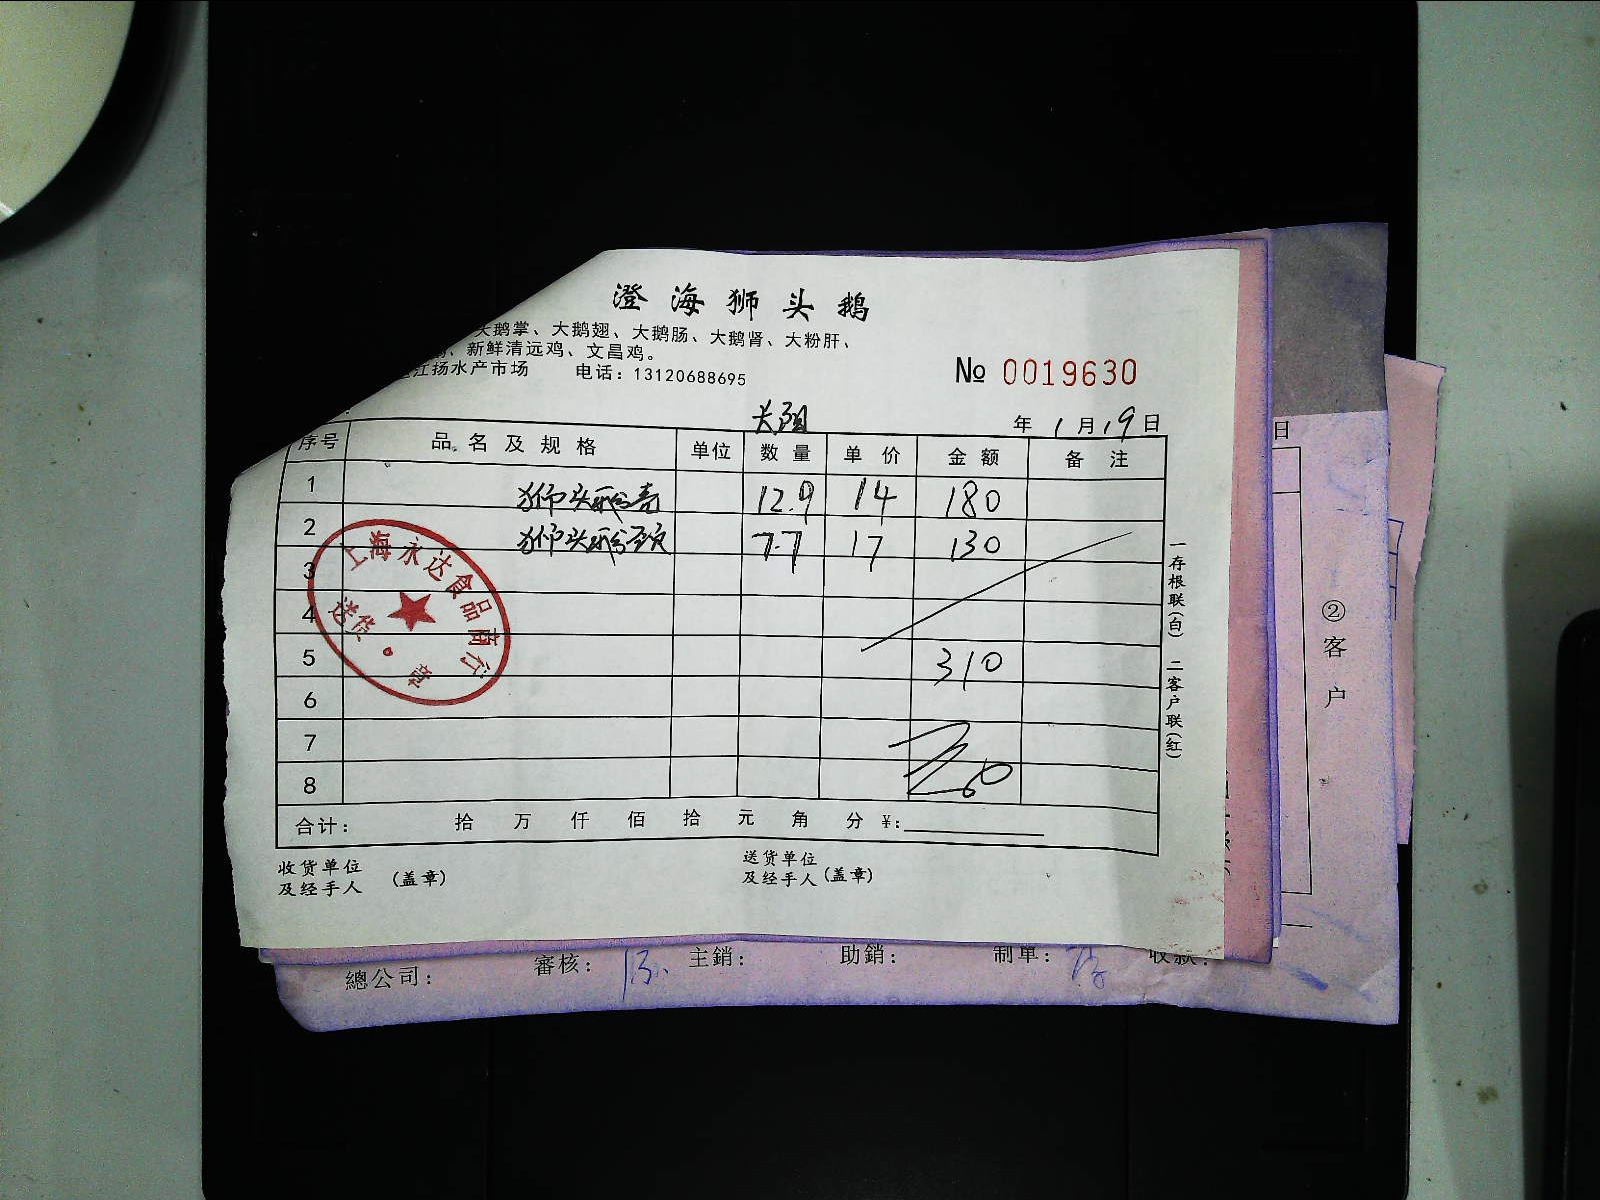 澄海狮头鹅
大鹅掌、大鹅翅、大鹅肠、大鹅肾、大粉肝、
、新鲜清远鸡、文昌鸡。
江扬水产市场 电话：13120688695
№ 0019630
长阳
年 1 月 19 日
序号 品名及规格 单位 数量 单价 金额 备注
1 狮头鹅壳 12.9 14 180
2 狮头鹅颈 7.7 17 130
3
4
5 310
6
7
8
合计： 拾 万 仟 佰 拾 元 角 分 ¥:
收货单位
及经手人 (盖章)
送货单位
及经手人 (盖章)
一存根联(白) 二客户联(红)
上海永达食品商行
送货章
日
②客户
總公司： 審核： 主銷： 助銷： 制单： 收款：